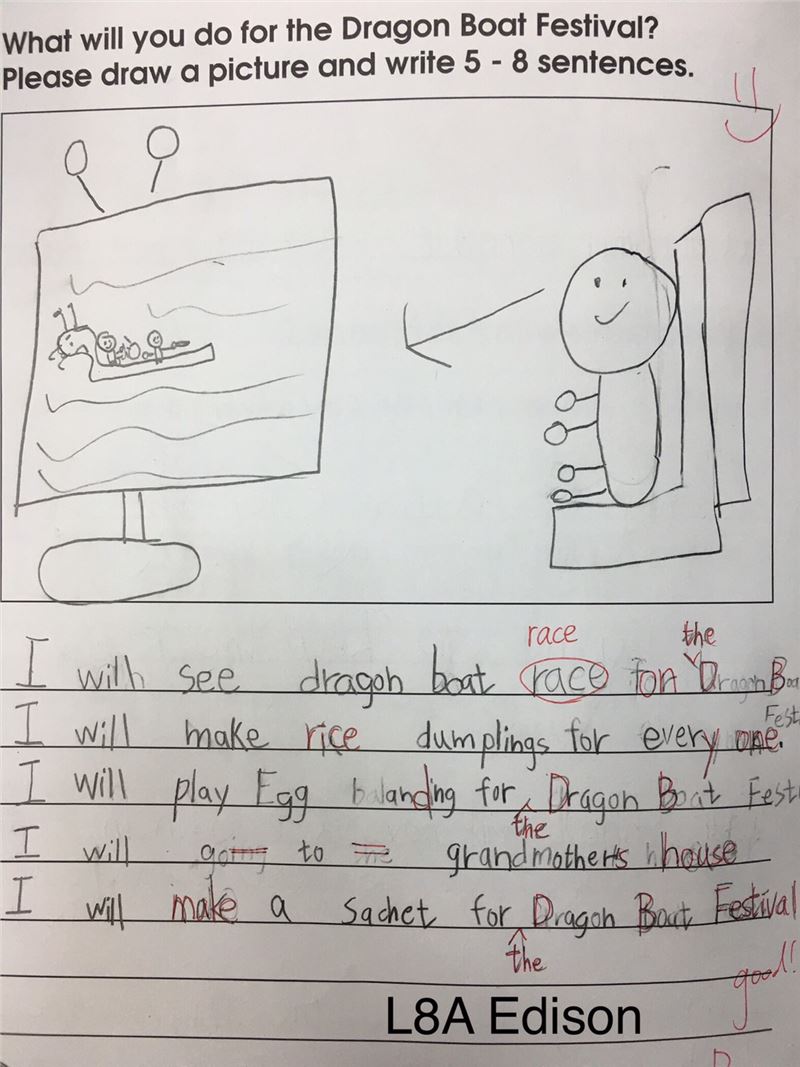 What will you do for the Dragon Boat Festival?
Please draw a picture and write 5 - 8 sentences.
race the
I will see dragon boat race for Dragon Boat
Fest
I will make rice dumplings for every one.
I will play Egg balanding for Dragon Boat Fest
the
I will going to grandmother's house
I will make a sachet for Dragon Boat Festival
the
good!
L8A Edison